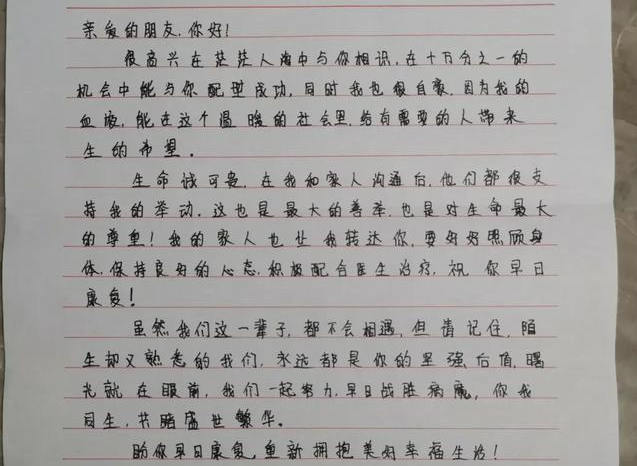 亲爱的朋友，你好！
很高兴在茫茫人海中与你相识，在十万分之一的
机会中能与你配型成功，同时我也很自豪，因为我的
血液，能在这个温暖的社会里，给有需要的人带来
生的希望。
生命诚可贵，在我和家人沟通后，他们都很支
持我的举动，这也是最大的善举，也是对生命最大
的尊重！我的家人也让我转达你，要好好照顾身
体，保持良好的心态，积极配合医生治疗，祝你早日
康复！
虽然我们这一辈子，都不会相遇，但请记住，陌
生却又熟悉的我们，永远都是你的坚强后盾，曙
光就在眼前，我们一起努力，早日战胜病魔，你我
同生，共睹盛世繁华。
助你早日康复，重新拥抱美好幸福生活！